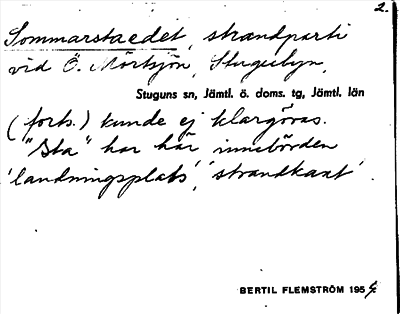 2.
Sommarstaedet, strandparti
vid Ö. Mörtsjön, Stugubyn,
Stuguns sn, Jämtl. ö. doms. tg, Jämtl. län
(forts.) kunde ej klargöras.
"Sta" har här innebörden
'landningsplats', 'strandkant'.
BERTIL FLEMSTRÖM 1954